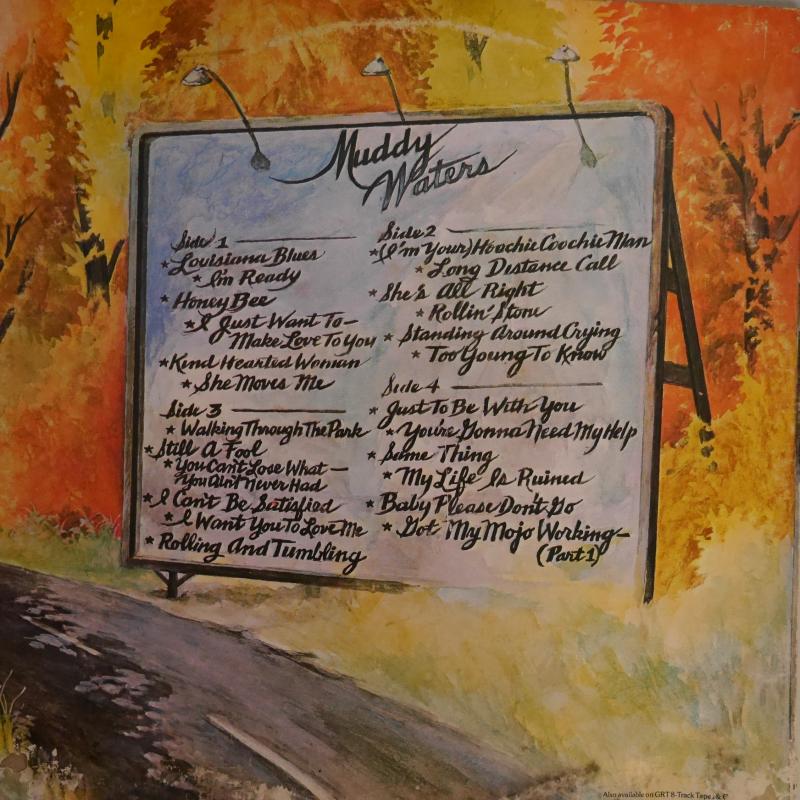 Muddy
Waters
Side 1
* Louisiana Blues
* I'm Ready
* Honey Bee
* I Just Want To—
Make Love To You
* Kind Hearted Woman
* She Moves Me
Side 2
* (I'm Your) Hoochie Coochie Man
* Long Distance Call
* She's All Right
* Rollin' Stone
* Standing Around Crying
* Too Young To Know
Side 3
* Walking Through The Park
* Still A Fool
* You Can't Lose What—
You Ain't Never Had
* I Can't Be Satisfied
* I Want You To Love Me
* Rolling And Tumbling
Side 4
* Just To Be With You
* You're Gonna Need My Help
* Same Thing
* My Life Is Ruined
* Baby Please Don't Go
* Got My Mojo Working—
(Part 1)
Also available on GRT 8-Track Tape